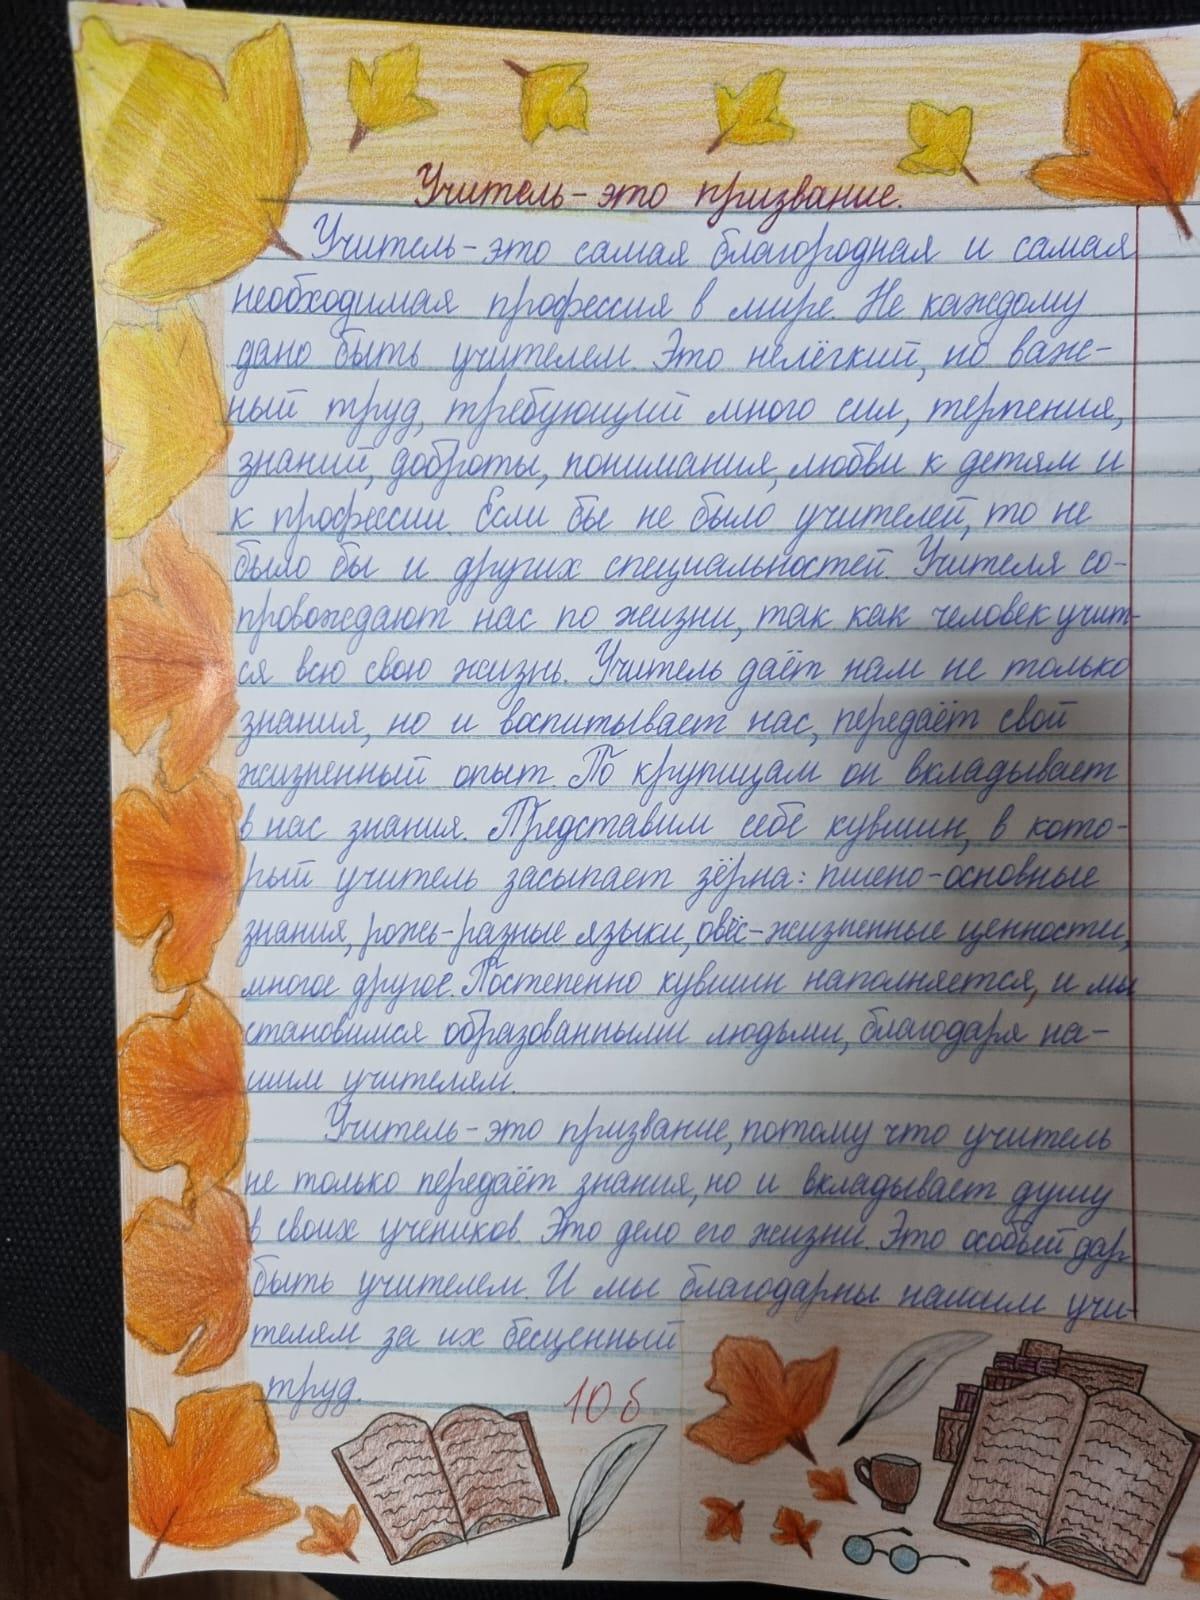 Учитель - это призвание.
Учитель - это самая благородная и самая
необходимая профессия в мире. Не каждому
дано быть учителем. Это нелёгкий, но важ-
ный труд, требующий много сил, терпения,
знаний, доброты, понимания, любви к детям и
к профессии. Если бы не было учителей, то не
было бы и других специальностей. Учителя со-
провождают нас по жизни, так как человек учит-
ся всю свою жизнь. Учитель даёт нам не только
знания, но и воспитывает нас, передаёт свой
жизненный опыт. По крупицам он вкладывает
в нас знания. Представим себе кувшин, в кото-
рый учитель засыпает зёрна: пшено - основные
знания, рожь - разные языки, овёс - жизненные ценности,
многое другое. Постепенно кувшин наполняется, и мы
становимся образованными людьми, благодаря на-
шим учителям.
Учитель - это призвание, потому что учитель
не только передаёт знания, но и вкладывает душу
в своих учеников. Это дело его жизни. Это особый дар
быть учителем. И мы благодарны нашим учи-
телям за их бесценный
труд.
10 б